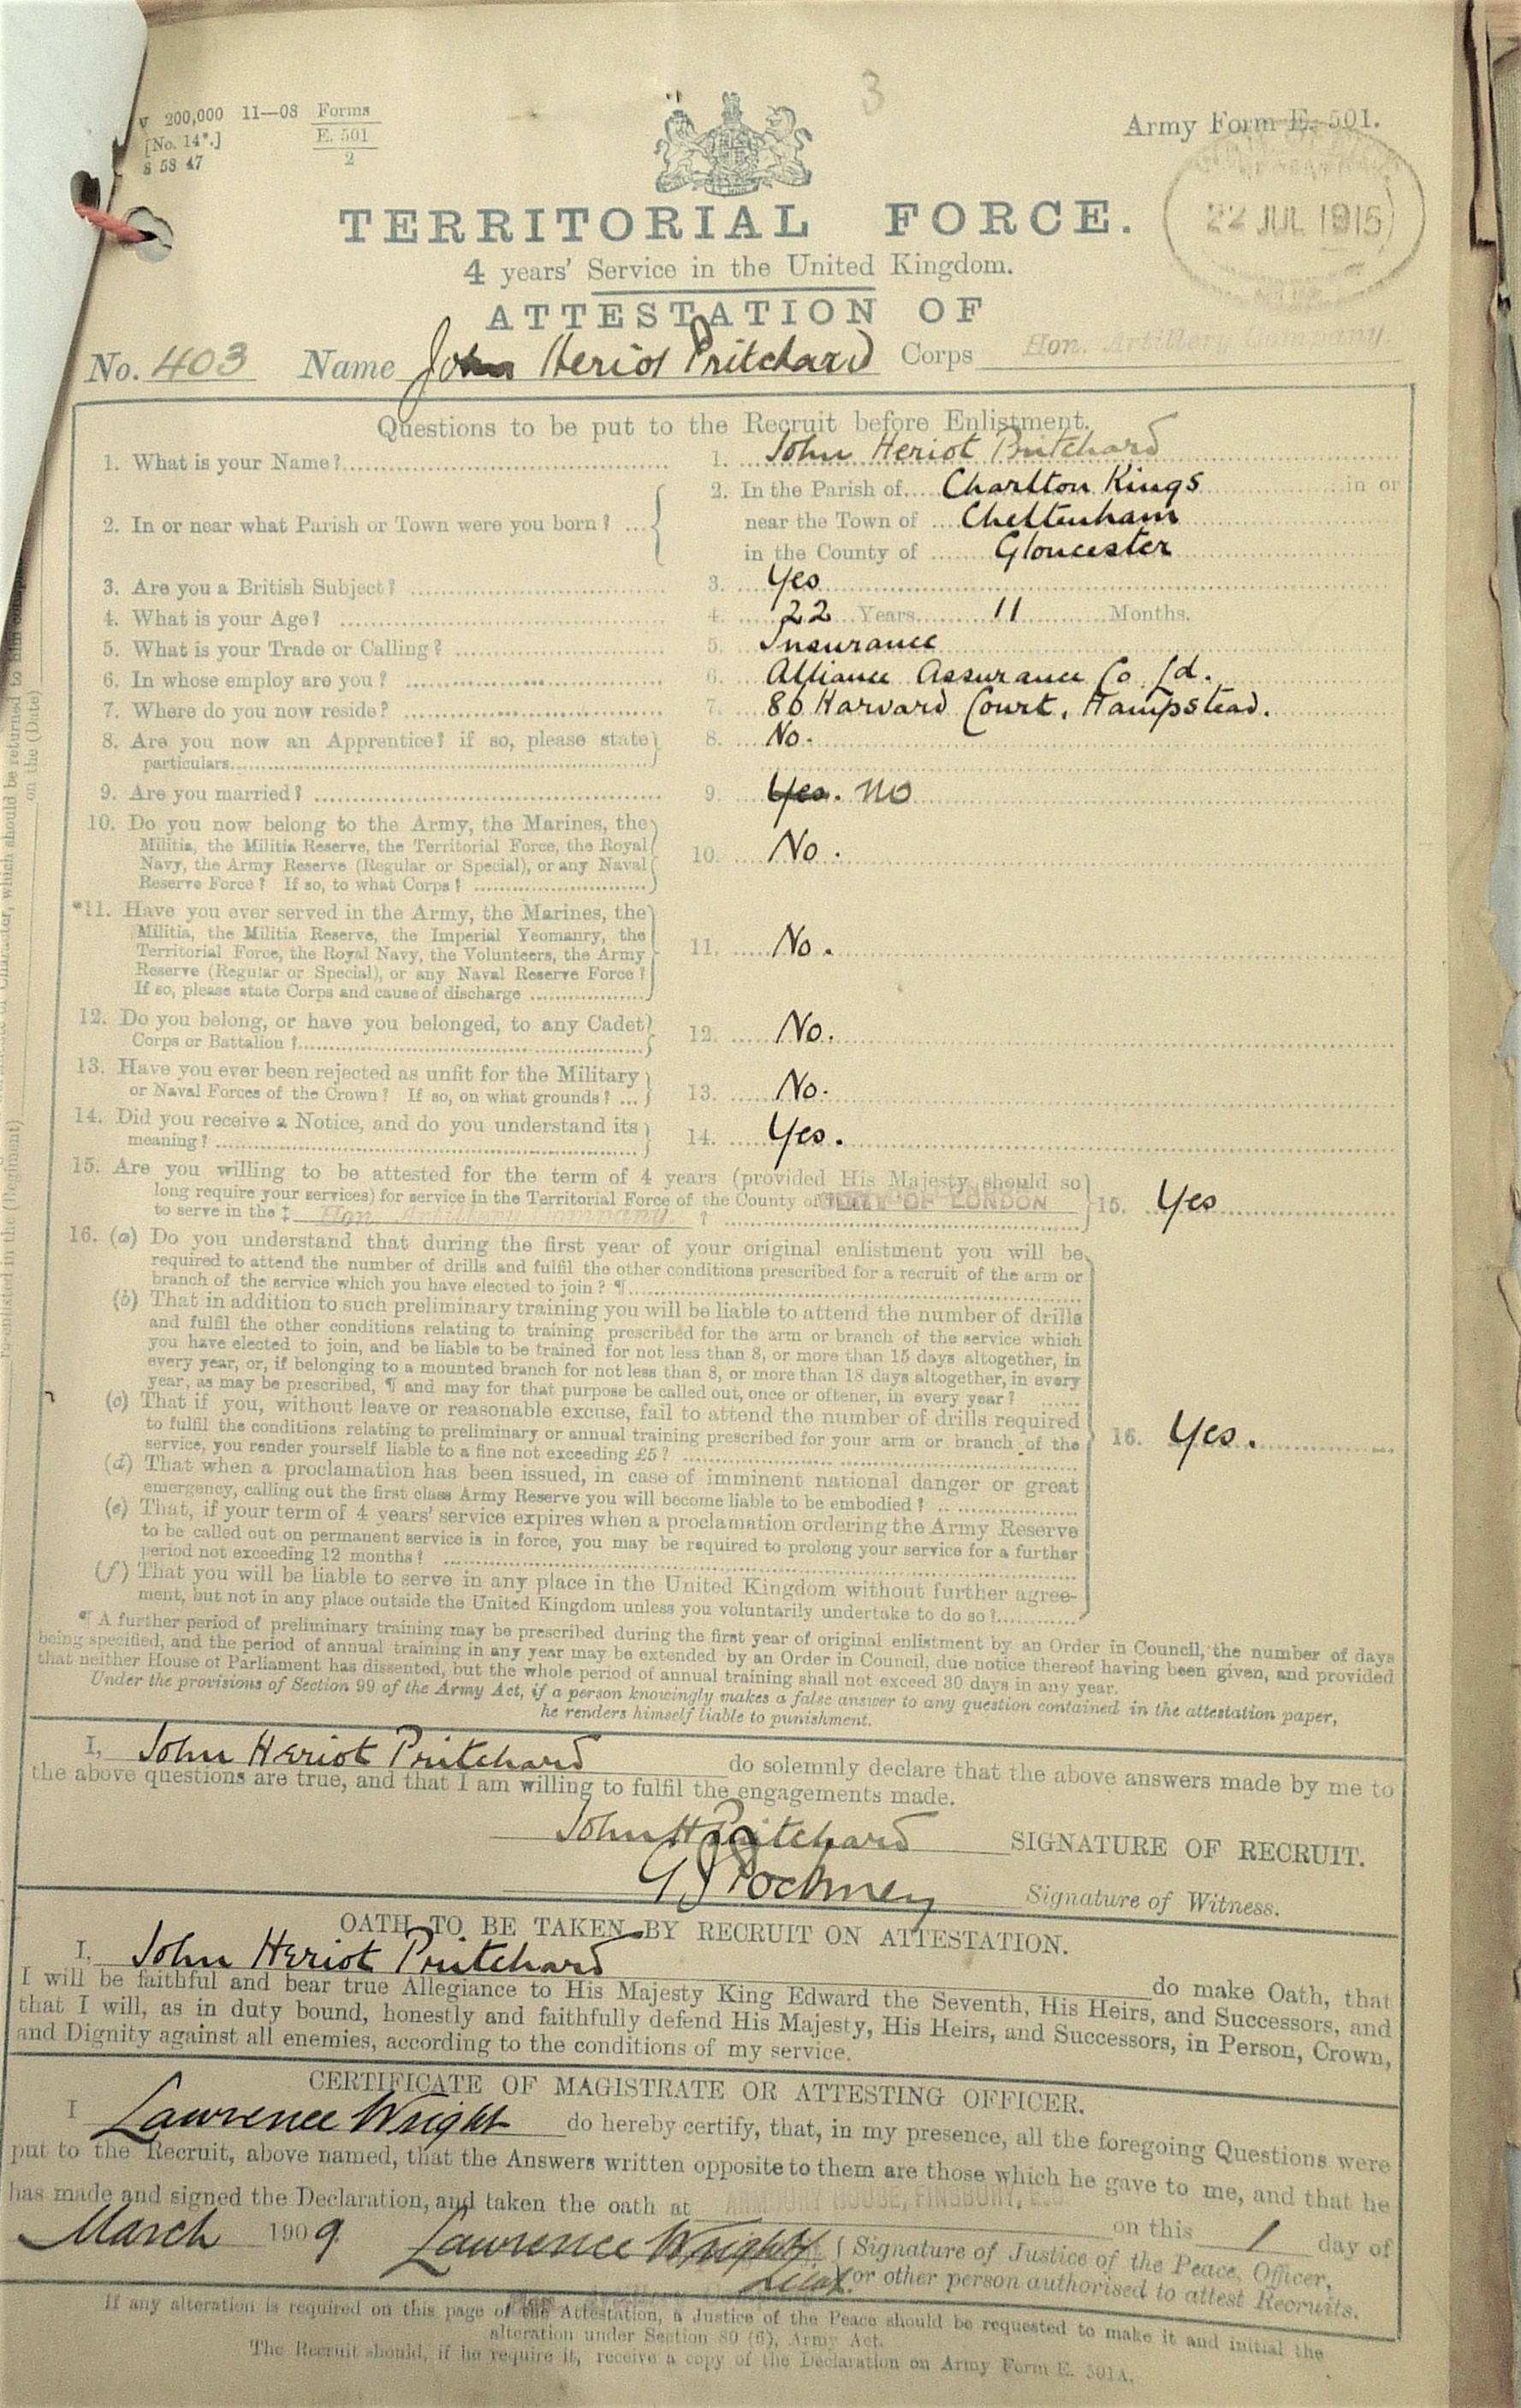 3
200,000 11—08 Forms
[No. 14*.] E. 501
S 58 47 2
Army Form E. 501.
22 JUL 1915
TERRITORIAL FORCE.
4 years' Service in the United Kingdom.
ATTESTATION OF
No. 403 Name John Heriot Pritchard Corps Hon. Artillery Company.
Questions to be put to the Recruit before Enlistment.
1. What is your Name? 1. John Heriot Pritchard
2. In or near what Parish or Town were you born? 2. In the Parish of Charlton Kings in or
near the Town of Cheltenham
in the County of Gloucester
3. Are you a British Subject? 3. Yes
4. What is your Age? 4. 22 Years 11 Months.
5. What is your Trade or Calling? 5. Insurance
6. In whose employ are you? 6. Alliance Assurance Co Ld.
7. Where do you now reside? 7. 86 Harvard Court, Hampstead.
8. Are you now an Apprentice? if so, please state 8. No.
particulars
9. Are you married? 9. Yes. No
10. Do you now belong to the Army, the Marines, the
Militia, the Militia Reserve, the Territorial Force, the Royal 10. No.
Navy, the Army Reserve (Regular or Special), or any Naval
Reserve Force? If so, to what Corps?
*11. Have you ever served in the Army, the Marines, the
Militia, the Militia Reserve, the Imperial Yeomanry, the
Territorial Force, the Royal Navy, the Volunteers, the Army 11. No.
Reserve (Regular or Special), or any Naval Reserve Force?
If so, please state Corps and cause of discharge
12. Do you belong, or have you belonged, to any Cadet 12. No.
Corps or Battalion?
13. Have you ever been rejected as unfit for the Military 13. No.
or Naval Forces of the Crown? If so, on what grounds? ...
14. Did you receive a Notice, and do you understand its 14. Yes.
meaning?
15. Are you willing to be attested for the term of 4 years (provided His Majesty should so
long require your services) for service in the Territorial Force of the County of CITY OF LONDON 15. Yes
to serve in the ‡ Hon. Artillery Company. ?
16. (a) Do you understand that during the first year of your original enlistment you will be
required to attend the number of drills and fulfil the other conditions prescribed for a recruit of the arm or
branch of the service which you have elected to join? ¶
(b) That in addition to such preliminary training you will be liable to attend the number of drills
and fulfil the other conditions relating to training prescribed for the arm or branch of the service which
you have elected to join, and be liable to be trained for not less than 8, or more than 15 days altogether, in
every year, or, if belonging to a mounted branch for not less than 8, or more than 18 days altogether, in every
year, as may be prescribed, ¶ and may for that purpose be called out, once or oftener, in every year?
(c) That if you, without leave or reasonable excuse, fail to attend the number of drills required
to fulfil the conditions relating to preliminary or annual training prescribed for your arm or branch of the 16. Yes.
service, you render yourself liable to a fine not exceeding £5?
(d) That when a proclamation has been issued, in case of imminent national danger or great
emergency, calling out the first class Army Reserve you will become liable to be embodied?
(e) That, if your term of 4 years' service expires when a proclamation ordering the Army Reserve
to be called out on permanent service is in force, you may be required to prolong your service for a further
period not exceeding 12 months?
(f) That you will be liable to serve in any place in the United Kingdom without further agree-
ment, but not in any place outside the United Kingdom unless you voluntarily undertake to do so?
¶ A further period of preliminary training may be prescribed during the first year of original enlistment by an Order in Council, the number of days
being specified, and the period of annual training in any year may be extended by an Order in Council, due notice thereof having been given, and provided
that neither House of Parliament has dissented, but the whole period of annual training shall not exceed 30 days in any year.
Under the provisions of Section 99 of the Army Act, if a person knowingly makes a false answer to any question contained in the attestation paper,
he renders himself liable to punishment.
I, John Heriot Pritchard do solemnly declare that the above answers made by me to
the above questions are true, and that I am willing to fulfil the engagements made.
John H Pritchard SIGNATURE OF RECRUIT.
Signature of Witness.
OATH TO BE TAKEN BY RECRUIT ON ATTESTATION.
I, John Heriot Pritchard do make Oath, that
I will be faithful and bear true Allegiance to His Majesty King Edward the Seventh, His Heirs, and Successors, and
that I will, as in duty bound, honestly and faithfully defend His Majesty, His Heirs, and Successors, in Person, Crown,
and Dignity against all enemies, according to the conditions of my service.
CERTIFICATE OF MAGISTRATE OR ATTESTING OFFICER.
I Lawrence Wright do hereby certify, that, in my presence, all the foregoing Questions were
put to the Recruit, above named, that the Answers written opposite to them are those which he gave to me, and that he
has made and signed the Declaration, and taken the oath at ARMOURY HOUSE, FINSBURY, E.C. on this 1 day of
March 1909. Lawrence Wright Signature of Justice of the Peace, Officer,
Lieut. or other person authorised to attest Recruits.
If any alteration is required on this page of the Attestation, a Justice of the Peace should be requested to make it and initial the
alteration under Section 80 (6), Army Act.
The Recruit should, if he require it, receive a copy of the Declaration on Army Form E. 501A.